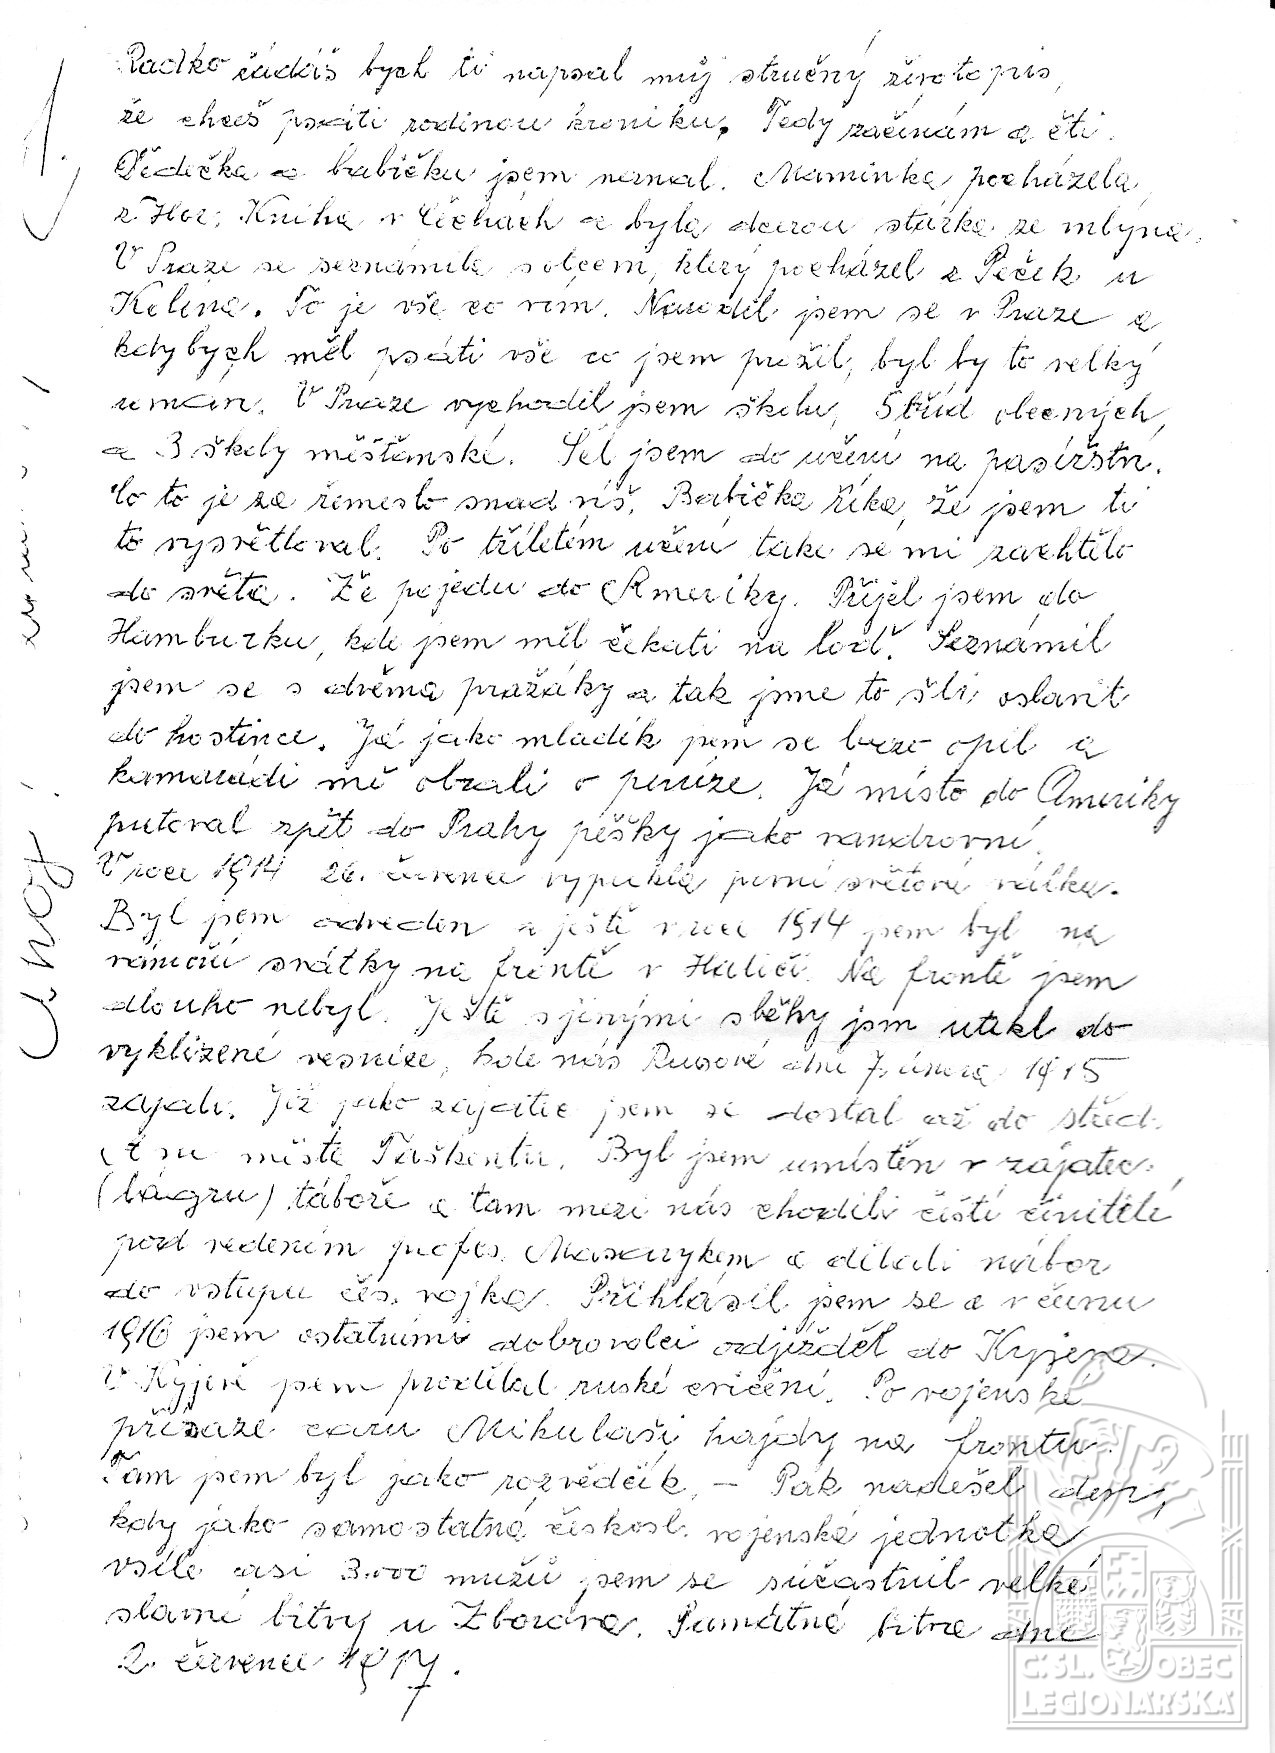 1.
Radko žádáš bych ti napsal můj stručný životopis,
že chceš psáti rodinou kroniku. Tedy začínám a čti.
Dědečka a babičku jsem neznal. Maminka pocházela
z Hor. Kniha v Čechách a byla dcerou stárka ze mlýna.
V Praze se seznámila s otcem, který pocházel z Peček u
Kolína. To je vše co vím. Narodil jsem se v Praze a
kdybych měl psáti vše co jsem prožil, byl by to velký
román. V Praze vychodil jsem školu, 5 tříd obecných,
a 3 školy měšťanské. Šel jsem do učení na pasířství.
Co to je za řemeslo snad víš. Babička říká, že jsem ti
to vysvětloval. Po tříletém učení také se mi zachtělo
do světa. Že pojedu do Ameriky. Přijel jsem do
Hamburku, kde jsem měl čekati na loď. Seznámil
jsem se s dvěma pražáky a tak jsme to šli oslavit
do hostince. Já jako mladík jsem se brzo opil a
kamarádi mě obrali o peníze. Já místo do Ameriky
putoval zpět do Prahy pěšky jako vandrovní.
V roce 1914 26. července vypukla první světová válka.
Byl jsem odveden a ještě v roce 1914 jsem byl na
vánoční svátky na frontě v Haliči. Na frontě jsem
dlouho nebyl. Ještě s jinými sběhy jsm utekl do
vyklizené vesnice, kde nás Rusové dne 7. února 1915
zajali. Již jako zajatec jsem se dostal až do střed.
města Taškentu. Byl jsem umístěn v zajatec.
(lágru) táboře a tam mezi nás chodili čeští činitelé
pod vedením profes. Masarykem a dělali nábor
do vstupu čes. vojska. Přihlásil jsem se a v červnu
1916 jsem ostatními dobrovolci odjížděl do Kyjeva.
V Kyjevě jsem prodělal ruské cvičení. Po vojenské
přísaze caru Mikuláši hajdy na frontu.
Tam jsem byl jako rozvědčík. — Pak nadešel den,
kdy jako samostatná českosl. vojenská jednotka
vsíle asi 3.000 mužů jsem se súčastnil velké
slavné bitvy u Zborova. Památná bitva dne
2. července 1917.
Č:SL. OBEC
LEGIONÁŘSKÁ